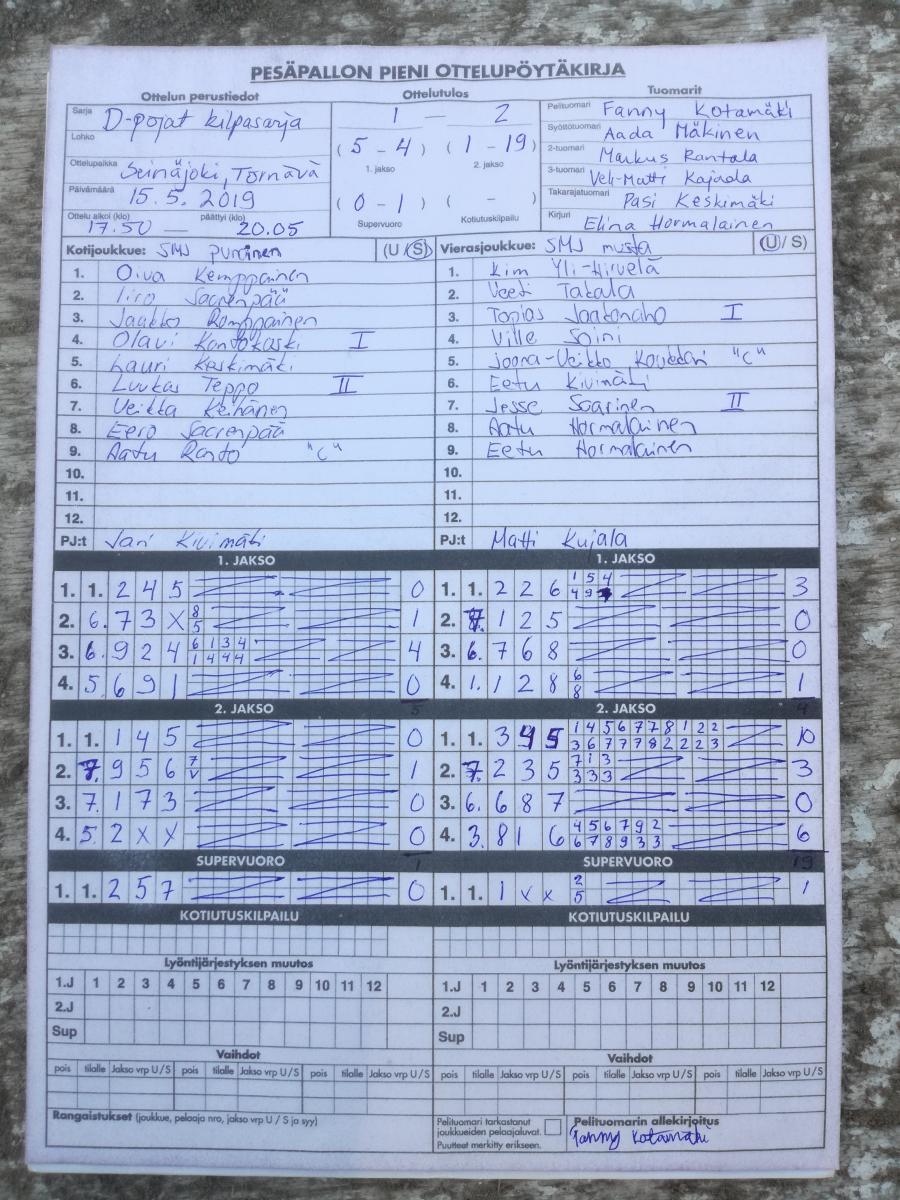 PESÄPALLON PIENI OTTELUPÖYTÄKIRJA
Ottelun perustiedot
Sarja D-pojat kilpasarja
Lohko
Ottelupaikka Seinäjoki, Törnävä
Päivämäärä 15.5.2019
Ottelu alkoi (klo) päättyi (klo)
17.50 — 20.05
Ottelutulos
1 — 2
(5 - 4) (1 - 19)
1. jakso 2. jakso
(0 - 1) ( - )
Supervuoro Kotiutuskilpailu
Tuomarit
Pelituomari Fanny Kotamäki
Syöttötuomari Aada Mäkinen
2-tuomari Markus Rantala
3-tuomari Veli-Matti Kajaala
Takarajatuomari Pasi Keskimäki
Kirjuri Elina Hormalainen
Kotijoukkue: SMJ punainen (U/S)
1. Oiva Kemppainen
2. Iiro Saarenpää
3. Jaakko Romppainen
4. Olavi Kantokoski I
5. Lauri Keskimäki
6. Luukas Teppo II
7. Veikka Keränen
8. Eero Saarenpää
9. Aatu Ranto "C"
10.
11.
12.
PJ:t Jari Kivimäki
Vierasjoukkue: SMJ musta (U/S)
1. Kim Yli-Hirvelä
2. Veeti Takala
3. Topias Jaatonaho I
4. Ville Soini
5. Joona-Veikko "C"
6. Eetu Kivimäki
7. Jesse Saarinen II
8. Aatu Hormalainen
9. Eetu Hormalainen
10.
11.
12.
PJ:t Matti Kujala
1. JAKSO
1. 1. 2 4 5 0
2. 6. 7 3 X 8 5 1
3. 6. 9 2 4 6 1 3 4 1 4 4 4 4
4. 5. 6 9 1 0
5
2. JAKSO
1. 1. 1 4 5 0
2. 7. 9 5 6 7 V 1
3. 7. 1 7 3 0
4. 5. 2 X X 0
1
SUPERVUORO
1. 1. 2 5 7 0
KOTIUTUSKILPAILU
Lyöntijärjestyksen muutos
1.J 1 2 3 4 5 6 7 8 9 10 11 12
2.J
Sup
Vaihdot
pois tilalle Jakso vrp U/S pois tilalle Jakso vrp U/S pois tilalle Jakso vrp U/S
Rangaistukset (joukkue, pelaaja nro, jakso vrp U / S ja syy)
1. JAKSO
1. 1. 2 2 6 1 5 4 4 9 3
2. 7. 1 2 5 0
3. 6. 7 6 8 0
4. 1. 1 2 8 6 8 1
4
2. JAKSO
1. 1. 3 4 5 1 4 5 6 7 7 8 1 2 2 3 6 7 7 7 8 2 2 2 3 10
2. 7. 2 3 5 7 1 3 3 3 3 3
3. 6. 6 8 7 0
4. 3. 8 1 6 4 5 6 7 9 2 6 7 8 9 3 3 6
19
SUPERVUORO
1. 1. 1 x x 2 5 1
KOTIUTUSKILPAILU
Lyöntijärjestyksen muutos
1.J 1 2 3 4 5 6 7 8 9 10 11 12
2.J
Sup
Vaihdot
pois tilalle Jakso vrp U/S pois tilalle Jakso vrp U/S pois tilalle Jakso vrp U/S
Pelituomari tarkastanut
joukkueiden pelaajaluvat.
Puutteet merkitty erikseen.
Pelituomarin allekirjoitus
Fanny Kotamäki